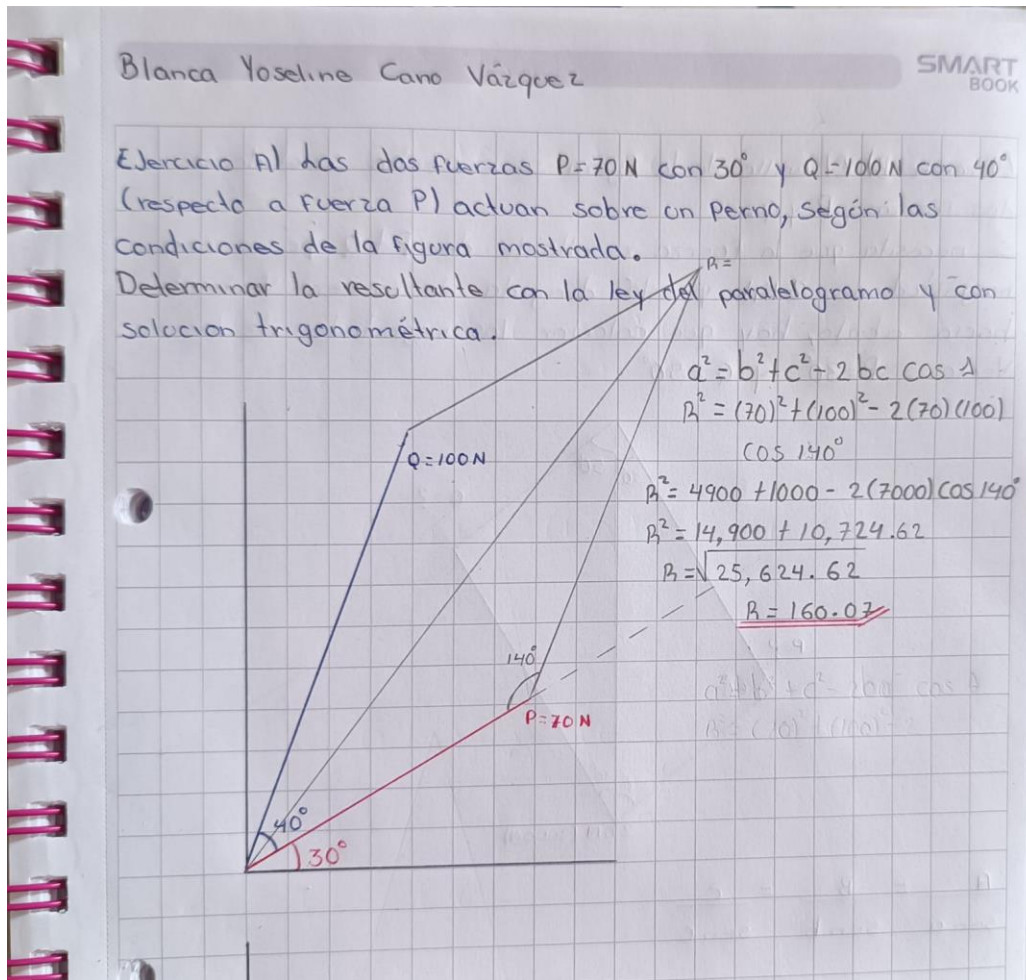 Blanca Yoseline Cano Vázquez
SMART
BOOK
Ejercicio A) has dos fuerzas P=70N con 30° y Q=100N con 40°
(respecto a fuerza P) actuan sobre un perno, según las
condiciones de la figura mostrada.
R=
Determinar la resultante con la ley del paralelogramo y con
solucion trigonométrica.
a²=b²+c²-2bc cos A
R²=(70)²+(100)²-2(70)(100)
cos 140°
Q=100N
R²=4900+1000-2(7000)cos140°
R²=14,900+10,724.62
R=√25,624.62
R=160.07
140°
P=70N
40°
30°